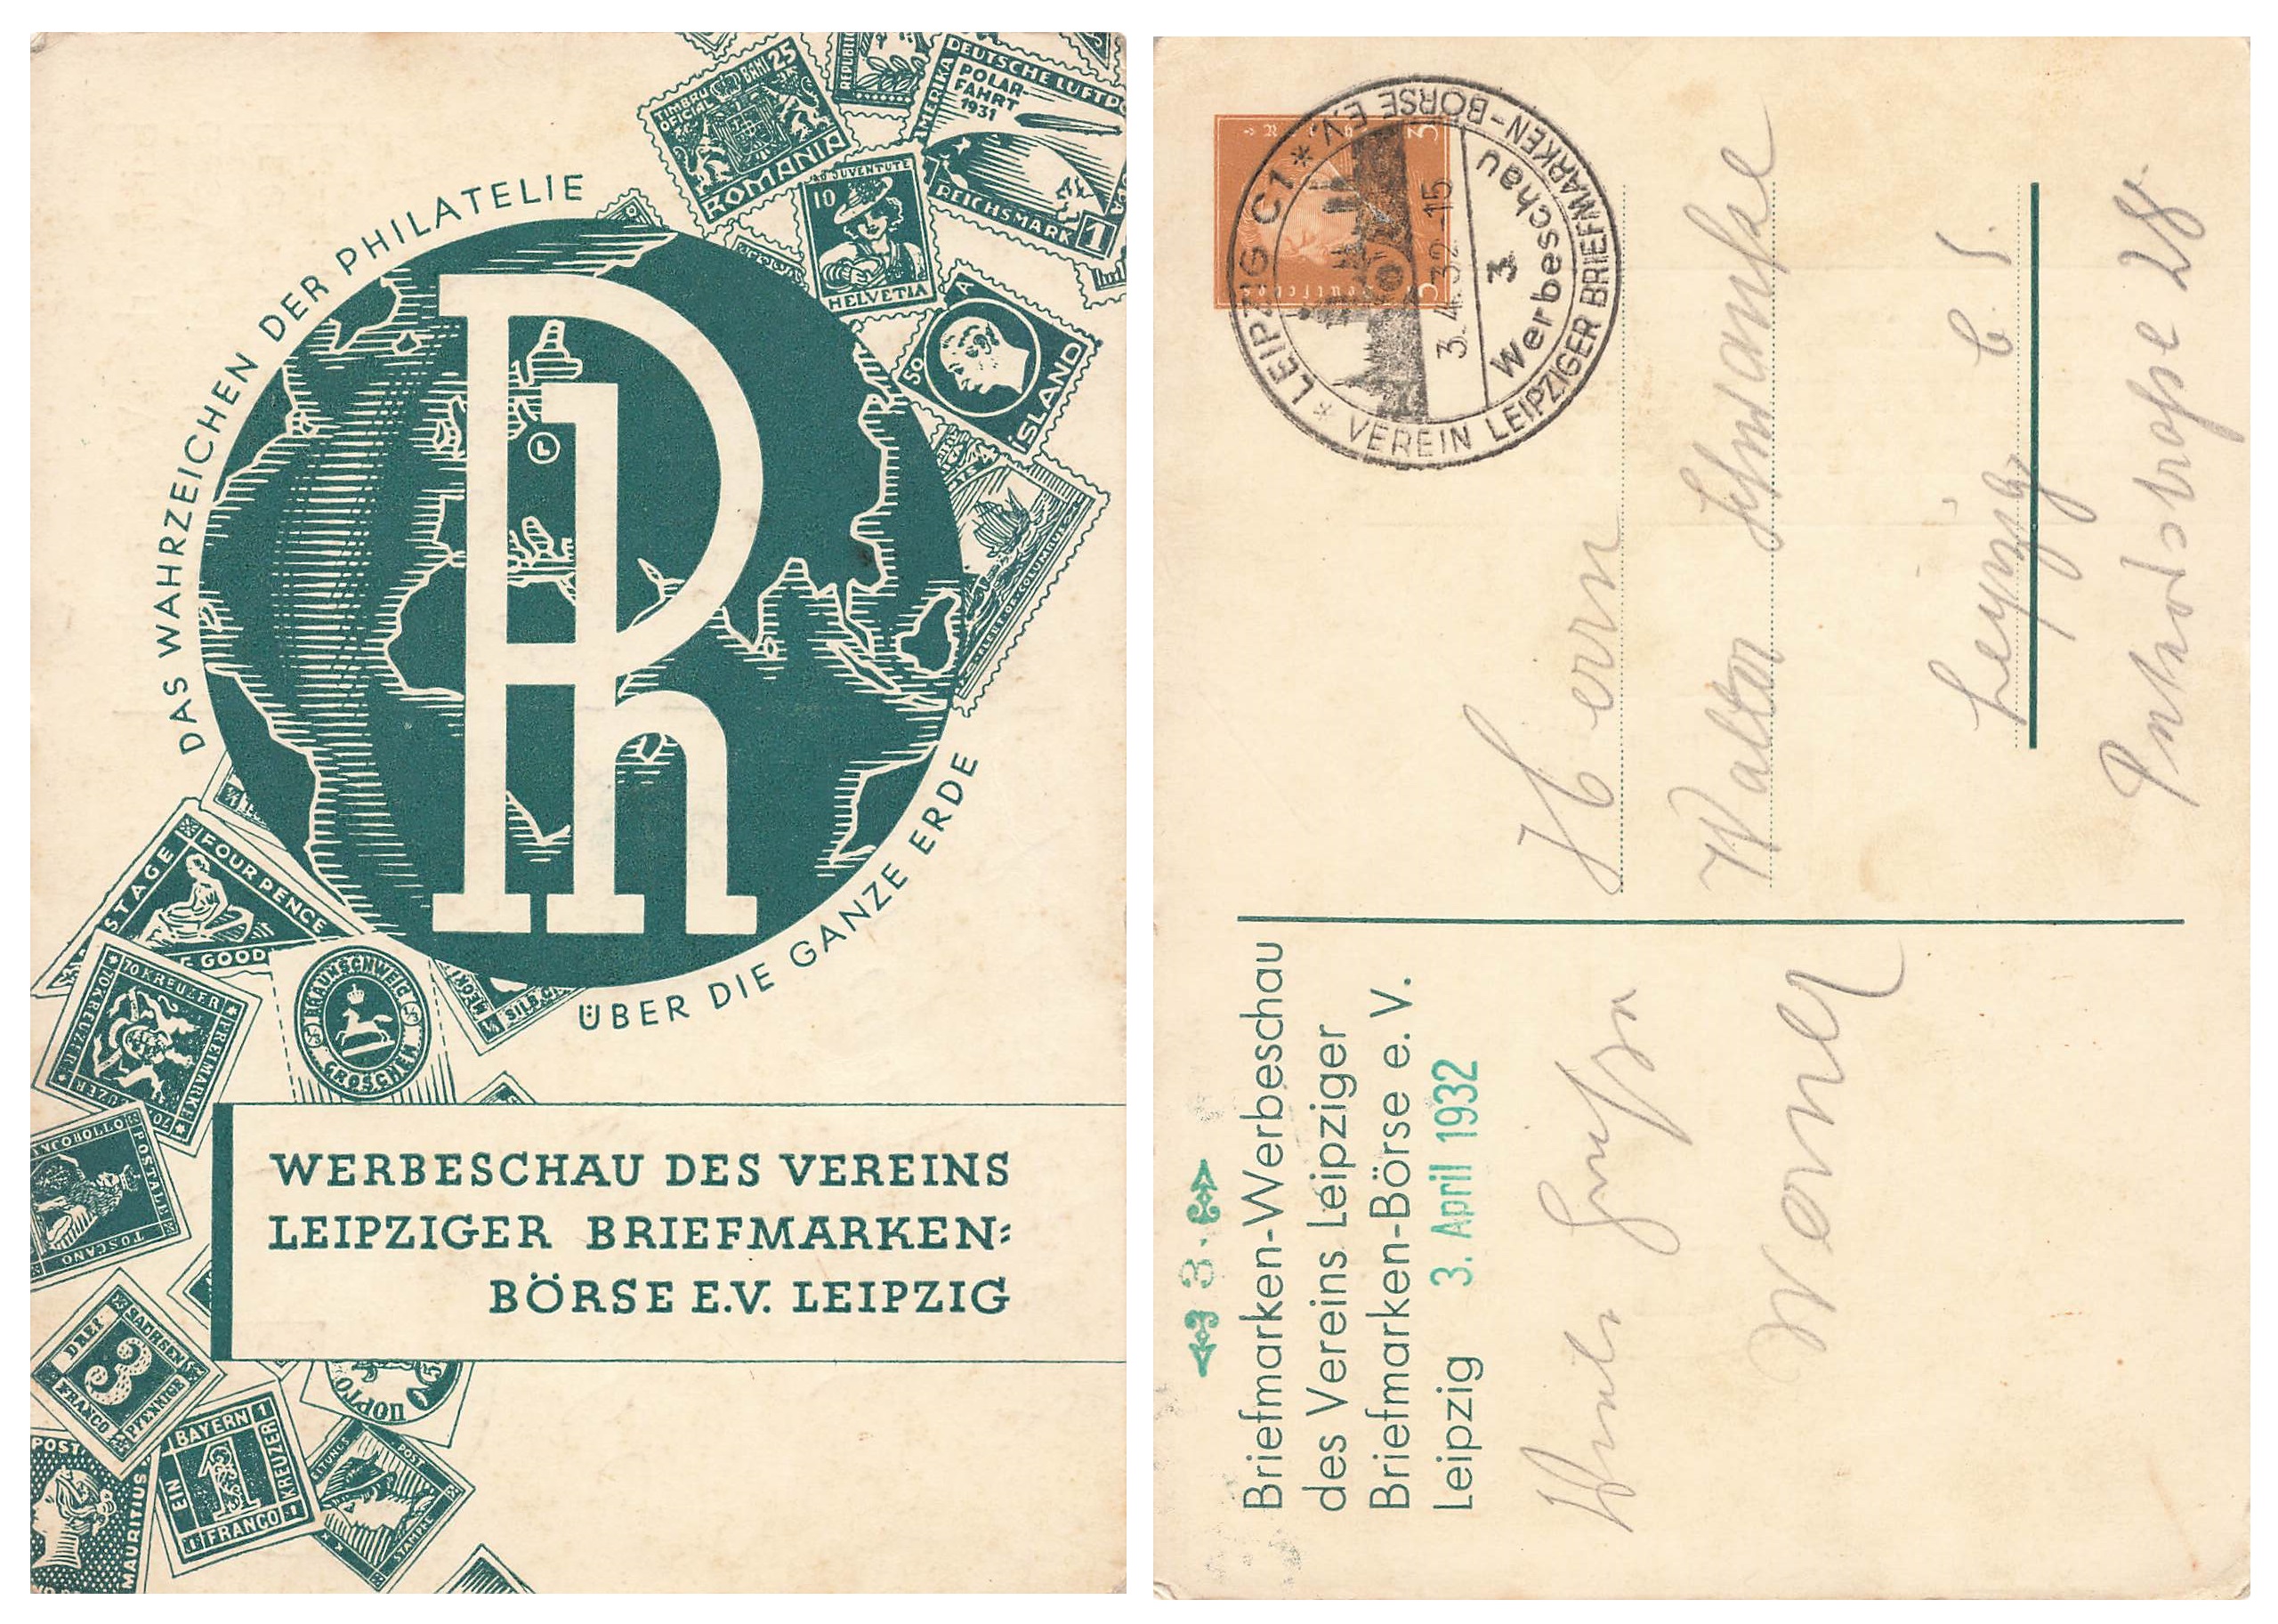 DAS WAHRZEICHEN DER PHILATELIE
ÜBER DIE GANZE ERDE
Ph
L
TIMBRU OFICIAL
BANI 25
ROMANIA
DEUTSCHE LUFTPO
AMERIKA
POLAR-
FAHRT
1931
REICHSMARK
1
PRO JUVENTUTE
10
HELVETIA
50 A
ÍSLAND
STAGE
FOUR PENCE
GOOD
70 KREUZER
70 KREUZER
FREIMARKE
BRAUNSCHWEIG
GROSCHEN
POSTALE
TOSCANO
WERBESCHAU DES VEREINS
LEIPZIGER BRIEFMARKEN=
BÖRSE E.V. LEIPZIG
DREI
SACHSEN
3
FRANCO
PFENNIGE
BAYERN
EIN
1
KREUZER
FRANCO
POST
MAURITIUS
POST
STAMPEL
3
* LEIPZIG C1 *
VEREIN LEIPZIGER BRIEFMARKEN-BÖRSE E.V.
3.4.32.-15
3.
Werbeschau
Herrn
Walter Schwanke
Leipzig C. 1.
28
3.
Briefmarken-Werbeschau
des Vereins Leipziger
Briefmarken-Börse e. V.
Leipzig 3. April 1932
Werner